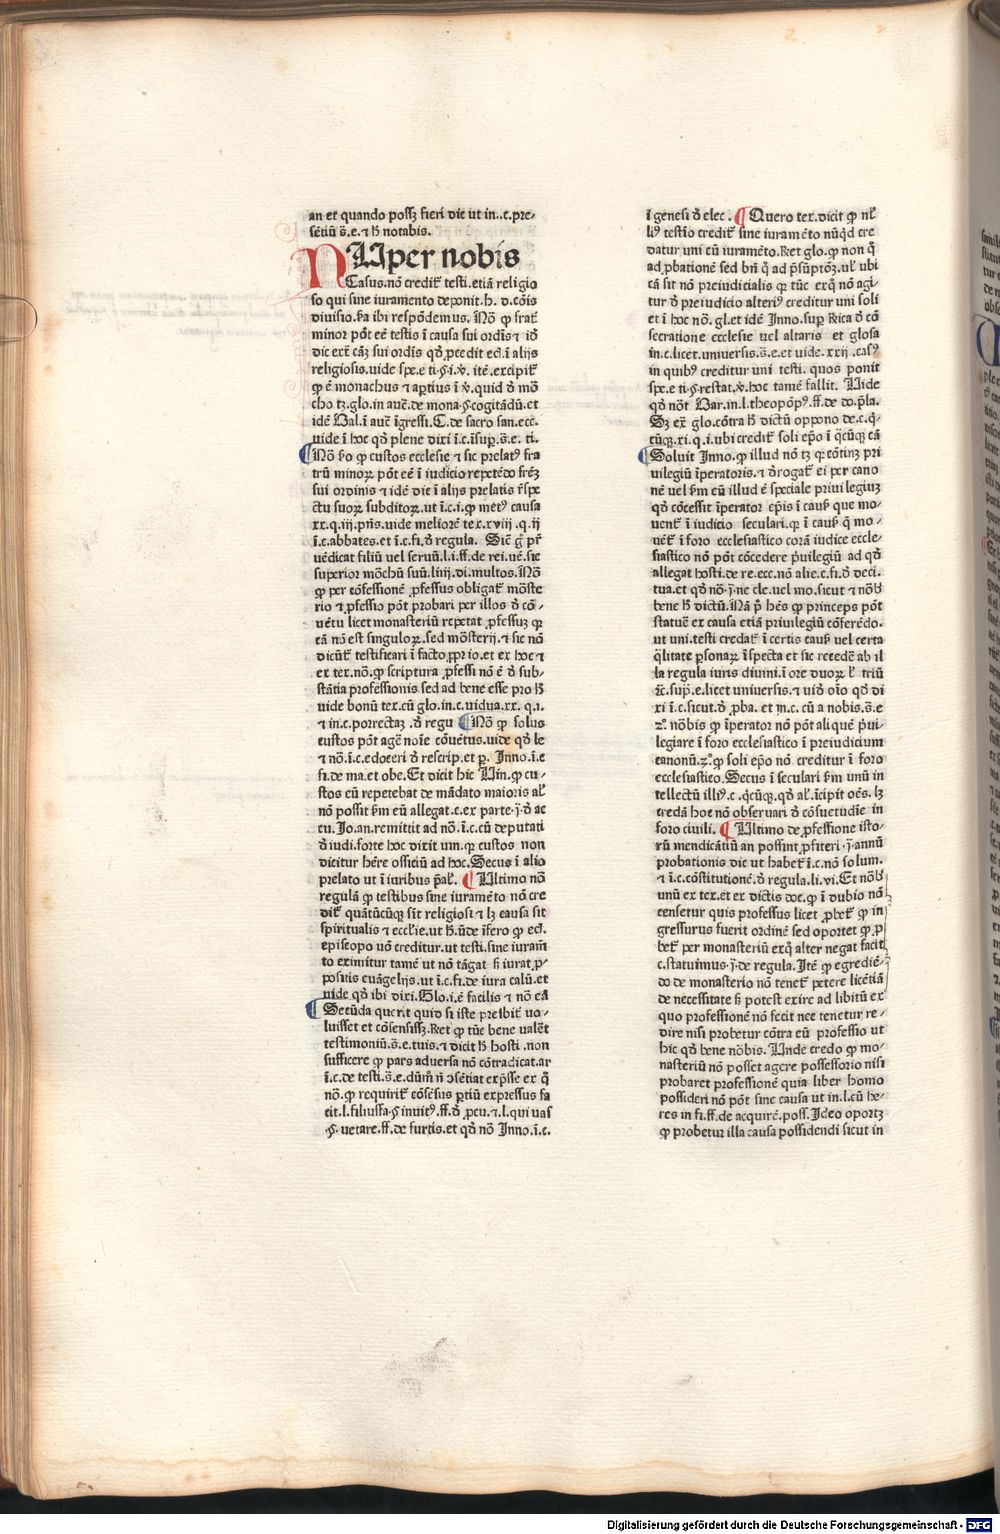 an et quando possꝫ fieri dic ut in..c.pre⸗
sētiū s̄.e.⁊ h̄ notabis.
NUper nobis
Casus.nō credit᷑ testi.etiā religio
so qui sine iuramento deponit.h. d.cōis
diuisio.ƀa ibi respōdemus. Nō ꝙ frat᷑
minor pōt eē testis ī causa sui ordīs ⁊ iō
religiosis.uide spe.e ti.§.i.ꝟ. itē.excipit᷑
ꝙ ē monachus ⁊ aptius ī ꝟ.quid ō mō
cho tꝫ.glo.in auc̄.de mona.§.cogitādū.et
idē Bal.ī auc̄ īgressi.C.de sacro san.ecc.
uide ī hoc qō plene dixi ī.c.īsup.s̄.e. ti.
Nō ƀo ꝙ custos ecclesie ⁊ sic prelatꝰ fra
trū minoꝝ pōt eē ī iudicio repetēdo fr̄eꝫ
sui ordinis ⁊ idē dic ī alijs prelatis r̄spe
ctu suoꝝ subditoꝝ.ut ī.c.i.ꝙ metꝰ causa
xx.q.iij.pn̄s.uide meliorē tex.xviij.q.ij
ī.c.abbates.et ī.c.fi.ō regula. Sic̄ g̊ pr̄
uēdicat filiū uel seruū.l.i.ff.de rei.uē.sic
superior mōchū suū.liiij.di.multos.Nō
ꝙ per cōfessionē ꝓfessus obligat᷑ mōste
rio ⁊ ꝓfessio pōt probari per illos ō cō⸗
uētu licet monasteriū repetat ꝓfessuꝫ ꝙ
cā nō est singuloꝝ.sed mōsterij.⁊ sic nō
dicūt᷑ testificari ī facto ꝓprio.et ex hoc ⁊
ex tex.nō.ꝙ scriptura ꝓfessi nō ē ō sub⸗
stātia professionis sed ad bene esse pro h̄
uide bonū tex.cū glo.in.c.uidua.xx. q.i.
⁊ in.c.porrectaꝫ .ō regu Nō ꝙ solus
custos pōt agē noīe cōuētus.uide qō le
⁊ nō.ī.c.edoceri ō rescrip.et p. Inno.ī.c
fi.de ma.et obe.Et dicit hic Uin.ꝙ cu⸗
stos cū repetebat de mādato maioris al̄
nō possit ƀm eū allegat.c.ex parte.j.ō ac
cu. Jo.an.remittit ad nō.ī.c.cū deputati
ō iudi.forte hoc dixit uin.ꝙ custos non
dicitur hēre officiū ad hoc.Secus ī alio
prelato ut ī iuribus p̄al᷑. Ultimo nō
regulā ꝙ testibus sine iuramēto nō cre
dit᷑ quātūcūꝙ sīt religiosi ⁊ lꝫ causa sit
spiritualis ⁊ ecclīe.ut h̄.ūde īfero ꝙ ecl.
episcopo uō creditur.ut testi.sine iuram̄
to eximitur tamē ut nō tāgat ſ; iurat ꝓ⸗
positis euāgelijs.ut ī.c.fi.de iura calū.et
uide qō ibi dixi.Glo.i.ē facilis ⁊ nō eā
Secūda querit quid si iste prelbit᷑ uo⸗
luisset et cōsensissꝫ.Ret ꝙ tūc bene ualēt
testimoniū.s̄.e.tuis.⁊ dicit h̄ hosti .non
sufficere ꝙ pars aduersa nō cōtradicat.ar
ī.c.de testi.s̄.e.dūm̄ n̄ ↄsētiat exp̄sse ex q̄
nō.ꝙ requirit᷑ cōsēsus ꝑtiū expressus fa
cit.l.filiussa.§ inuitꝰ.ff.ō ꝓcu.⁊.l.qui uas
.§.uetare.ff.de furtis.et qō nō Inno.ī.c.
ī genesi ō elec. Quero tex.dicit ꝙ nl̄
liꝰ testio credit᷑ sine iuramēto nūqd cre
datur uni cū iuramēto.Ret glo.ꝙ non q̄
ad ꝓbationē sed bn̄ q̄ ad p̄sūptōꝫ.ul̄ ubi
cā sit nō preiudicialis ꝙ tūc exq̄ nō agi⸗
tur ō preiudicio alteriꝰ creditur uni soli
et ī hoc nō. gl.et idē Inno.sup Rica ō cō
secratione ecclesie uel altaris et glosa
in.c.licet.uniuersis.s̄.e.et uide.xxij .casꝰ
in quibꝰ creditur uni testi. quos ponit
spe.e ti.§.restat.ꝟ.hoc tamē fallit. Uide
qō nōt Bar.in.l.theopōpꝰ.ff.de do.p̄la.
Sꝫ ex̄ glo.cōtra h̄ dictū oppono de.c.q̄⸗
cūꝙ.xi.q.i.ubi credit᷑ soli ep̄o ī q̄cūꝙ cā
Soluit Inno.ꝙ illud nō tꝫ ꝙ cōtinꝫ pri
uilegiū īperatoris.⁊ ōrogat᷑ ei per cano
nē uel ƀm eū illud ē speciale priuilegiuꝫ
qō cōcessit īperator ep̄is ī causꝭ que mo⸗
uent᷑ ī iudicio seculari.ꝙ ī causꝭ q̄ mo⸗
uēt᷑ ī foro ecclesiastico corā iudice eccle⸗
siastico nō pōt cōcedere p̄uilegiū ad qō
allegat hosti.de re.ecc.nō alie.c.fi.ō deci.
tua.et qō nō.j.ne cle.uel mo.sicut ⁊ nōb̄
bene h̄ dictū.Nā p̄ hēs ꝙ princeps pōt
statuē ex causa etiā priuilegiū cōferēdo.
ut uni.testi credat᷑ ī certis causꝭ uel certa
q̄litate ꝑsonaꝝ īspecta et sic recedē ab il
la regula iuris diuini.ī ore duoꝝ l̄ triū
⁊c.sup̄.e.licet uniuersis.⁊ uiō oīo qō di
xi ī.c.sicut.ō ꝓba. et īn.c. cū a nobis.s̄.e
⁊.° nōbis ꝙ īperator nō pōt aliquē p̄ui⸗
legiare ī foro ecclesiastico ī preiudicium
canonū.⁊.°.ꝙ soli ep̄o nō creditur ī foro
ecclesiastico.Secus ī seculari ƀm unū in
tellectū illiꝰ.c.q̄cūꝙ.qō al̄.īcipit oēs. lꝫ
credā hoc nō obseruari ō cōsuetudīe in
foro ciuili. Ultimo de ꝓfessione isto⸗
rū mendicātiū an possint ꝓfiteri.j.annū
probationis dic ut habet᷑ ī.c.nō solum.
⁊ ī.c.cōstitutionē.ō regula.li.vi.Et nōb̄
unū ex tex.et ex dictis doc.ꝙ ī dubio nō
censetur quis professus licet ꝓbet᷑ ꝙ in
gressurus fuerit ordinē sed oportet ꝙ ꝓ
bet᷑ per monasteriū exq̄ alter negat facit
c.statuimus.j.de regula.Itē ꝙ egrediē⸗
do de monasterio nō tenet᷑ petere licētiā
de necessitate ſ; potest exire ad libitū ex
quo professionē nō fecit nec tenetur re⸗
dire nisi probetur cōtra eū professio ut
hic qō bene nōbis. Unde credo ꝙ mo⸗
nasteriū nō posset agere possessorio nisi
probaret professionē quia liber homo
possideri nō pōt sine causa ut in.l.cū he⸗
res in fi.ff.de acquirē.poss.Ideo oportꝫ
ꝙ probetur illa causa possidendi sicut in
Digitalisierung gefördert durch die Deutsche Forschungsgemeinschaft - DFG